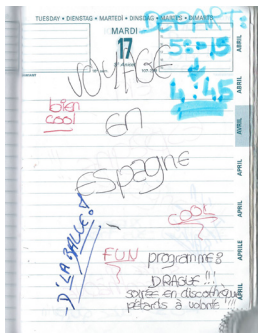 TUESDAY • DIENSTAG • MARTEDÌ • DINSDAG • MARTES • DIMARTS
DEPART
MARDI
17
5:15
4:45
VOYAGE
bien
cool
en
ESPAGNE
COOL
-D'LA BALLE!
FUN
programme :
DRAGUE !!!
soirée en discothèque
pétards à volonté !!!
ABRIL
ABRIL
AVRIL
APRIL
APRIL
APRILE
APRIL